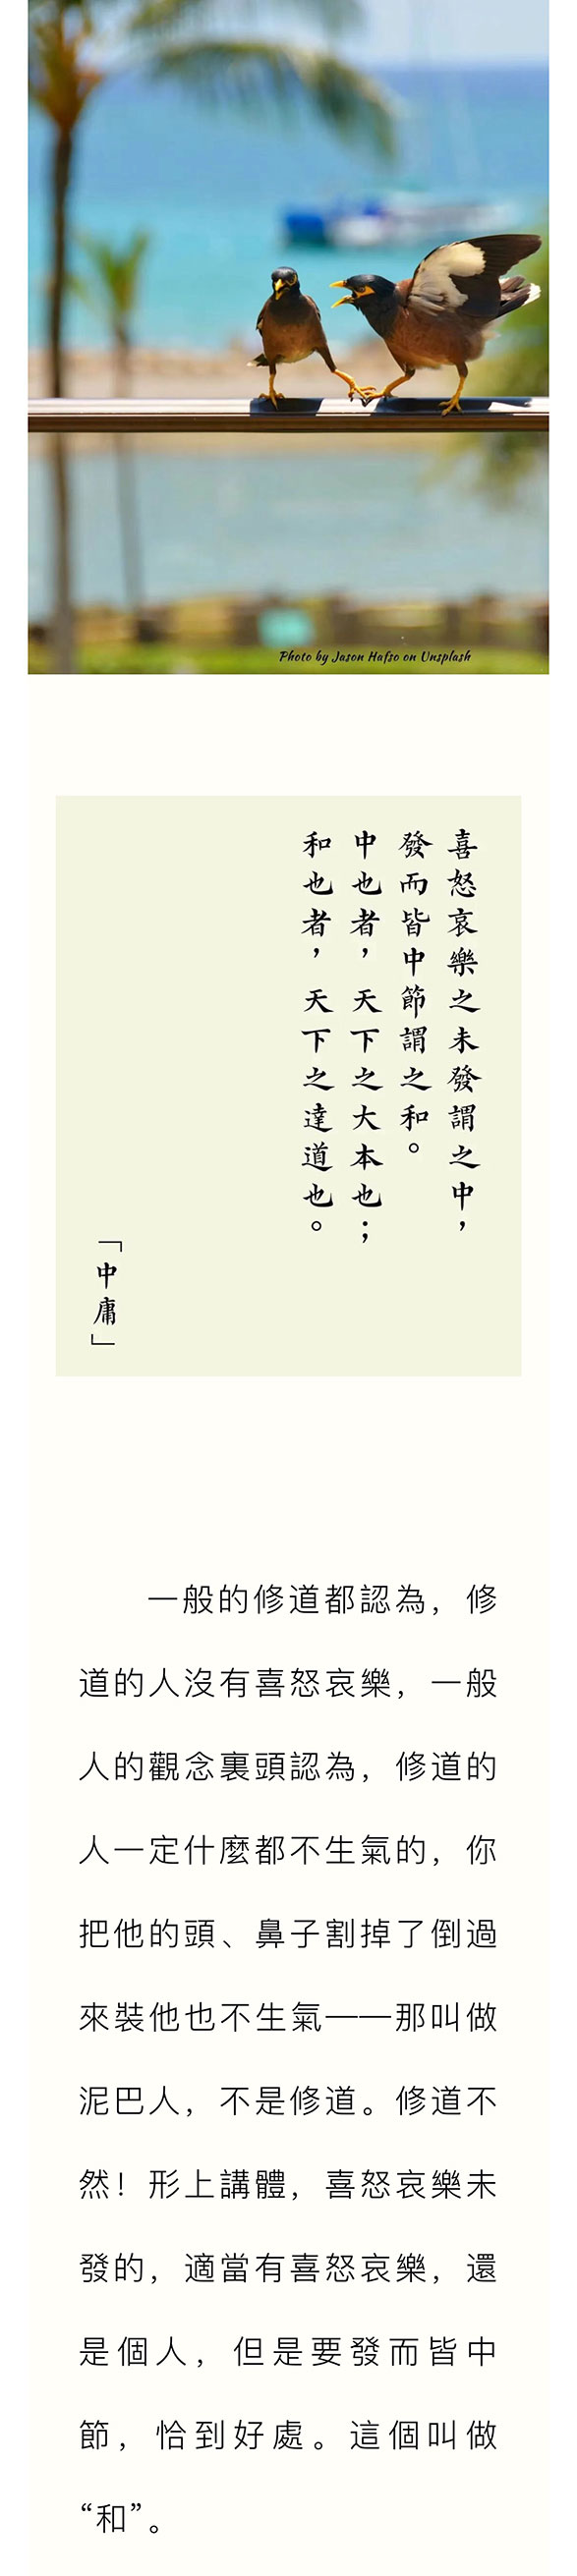 Photo by Jason Hafso on Unsplash
喜怒哀樂之未發謂之中，
發而皆中節謂之和。
中也者，天下之大本也；
和也者，天下之達道也。
「中庸」
一般的修道都認為，修
道的人沒有喜怒哀樂，一般
人的觀念裏頭認為，修道的
人一定什麼都不生氣的，你
把他的頭、鼻子割掉了倒過
來裝他也不生氣——那叫做
泥巴人，不是修道。修道不
然！形上講體，喜怒哀樂未
發的，適當有喜怒哀樂，還
是個人，但是要發而皆中
節，恰到好處。這個叫做
“和”。